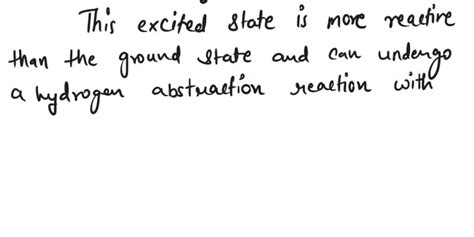 This excited state is more reactive
than the ground state and can undergo
a hydrogen abstraction reaction with